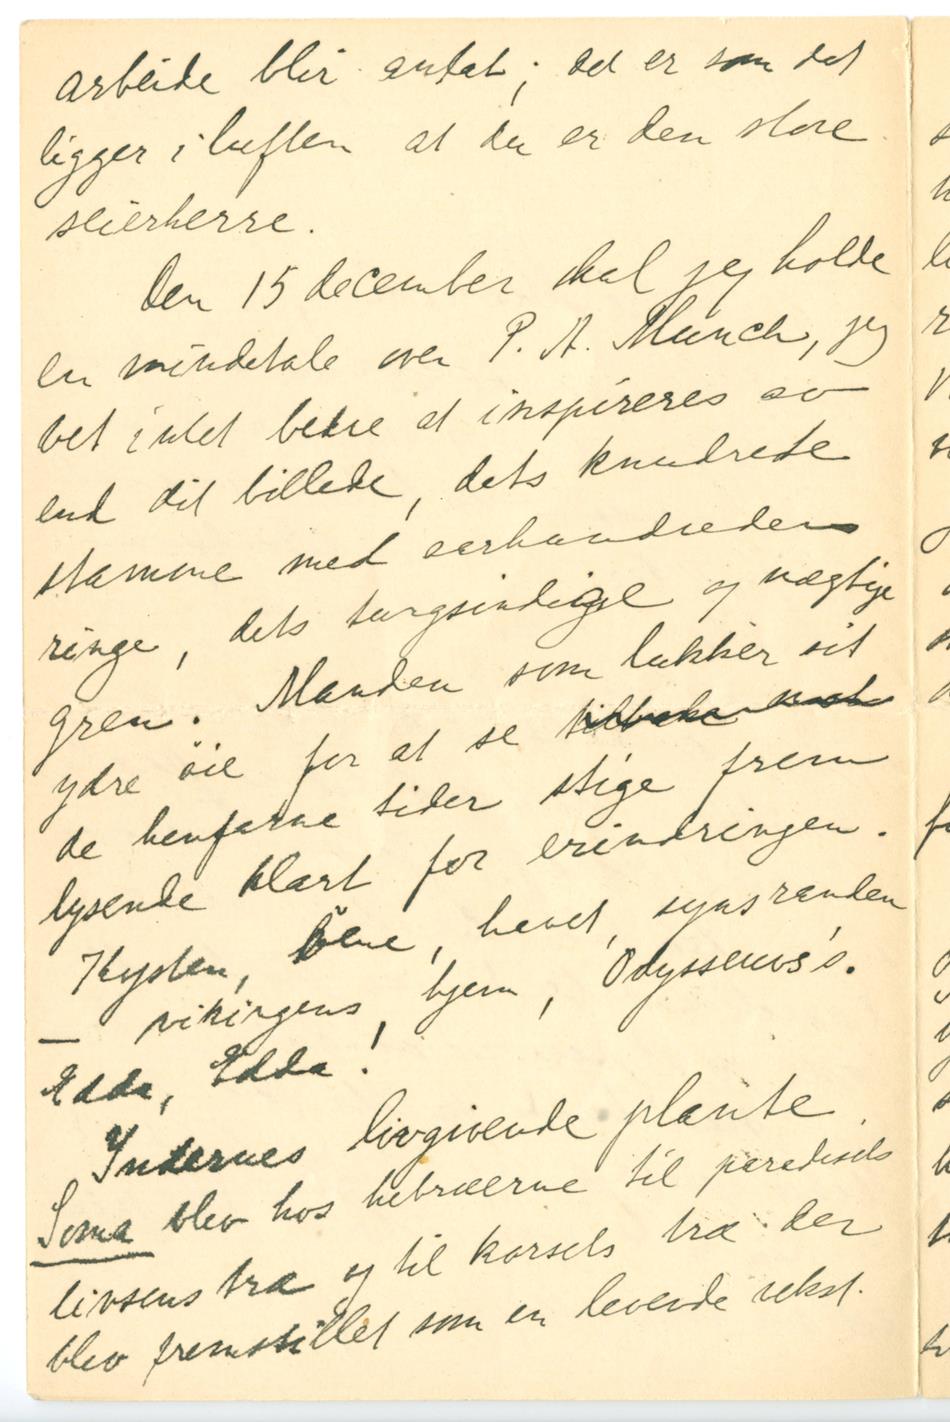 arbeide blir antat; det er som det
ligger i luften at du er den store
seierherre.
Den 15 december skal jeg holde
en mindetale over P. A. Munch, jeg
vet intet bedre at inspireres av
end dit billede, dets knudrede
stamme med aarhundreders
ringe, dets tungsindige og vægtige
gren. Manden som lukker sit
ydre öie for at se
de henfarne tider stige frem
lysende klart for erindringen.
Kysten, havet, synsranden
— vikingens hjem, Odysseus's.
Edda, Edda!
Indernes livgivende plante
Soma blev hos hebræerne til paradisets
livsens træ og til korsets træ der
blev fremstillet som en levende vekst.